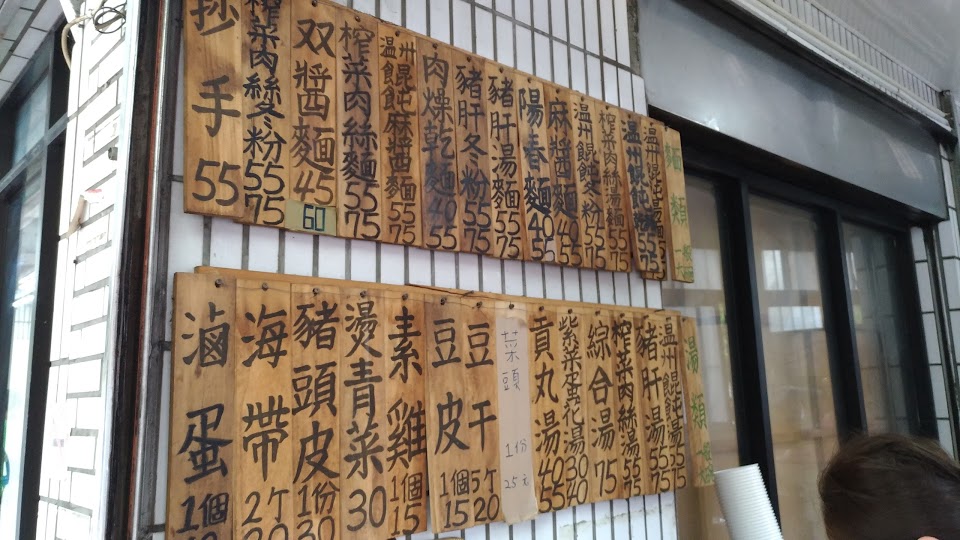 麵類
溫州餛飩湯麵 55 75
溫州餛飩麵 55 75
榨菜肉絲湯麵 55 75
溫州餛飩冬粉 55 75
麻醬麵 40 55
陽春麵 40 55
豬肝湯麵 55 75
豬肝冬粉 55 75
肉燥乾麵 40 55
溫州餛飩麻醬麵 55 75
榨菜肉絲麵 55 75
双醬麵 45 60
榨菜肉絲冬粉 55 75
抄手 55
湯類
溫州餛飩湯 55 75
豬肝湯 55 75
榨菜肉絲湯 55 75
綜合湯 75
紫菜蛋花湯 30 40
貢丸湯 40 55
菜頭 1份 25元
豆干 5ケ 20
豆皮 1個 15
素雞 1個 15
燙青菜 30
豬頭皮 1份 30
海帶 2ケ
滷蛋 1個